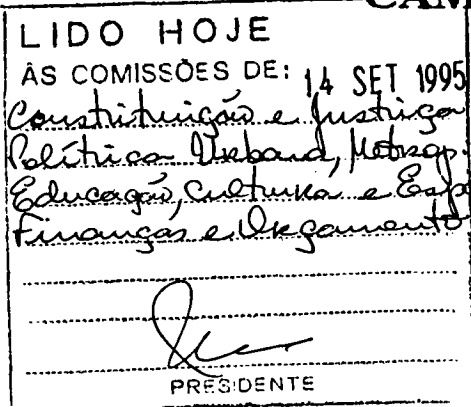 CAM
LIDO HOJE
ÀS COMISSÕES DE: 14 SET 1995
Constituição e Justiça
Política Urbana, Metrop.
Educação, Cultura e Esp
Finanças e Orçamento
PRESIDENTE